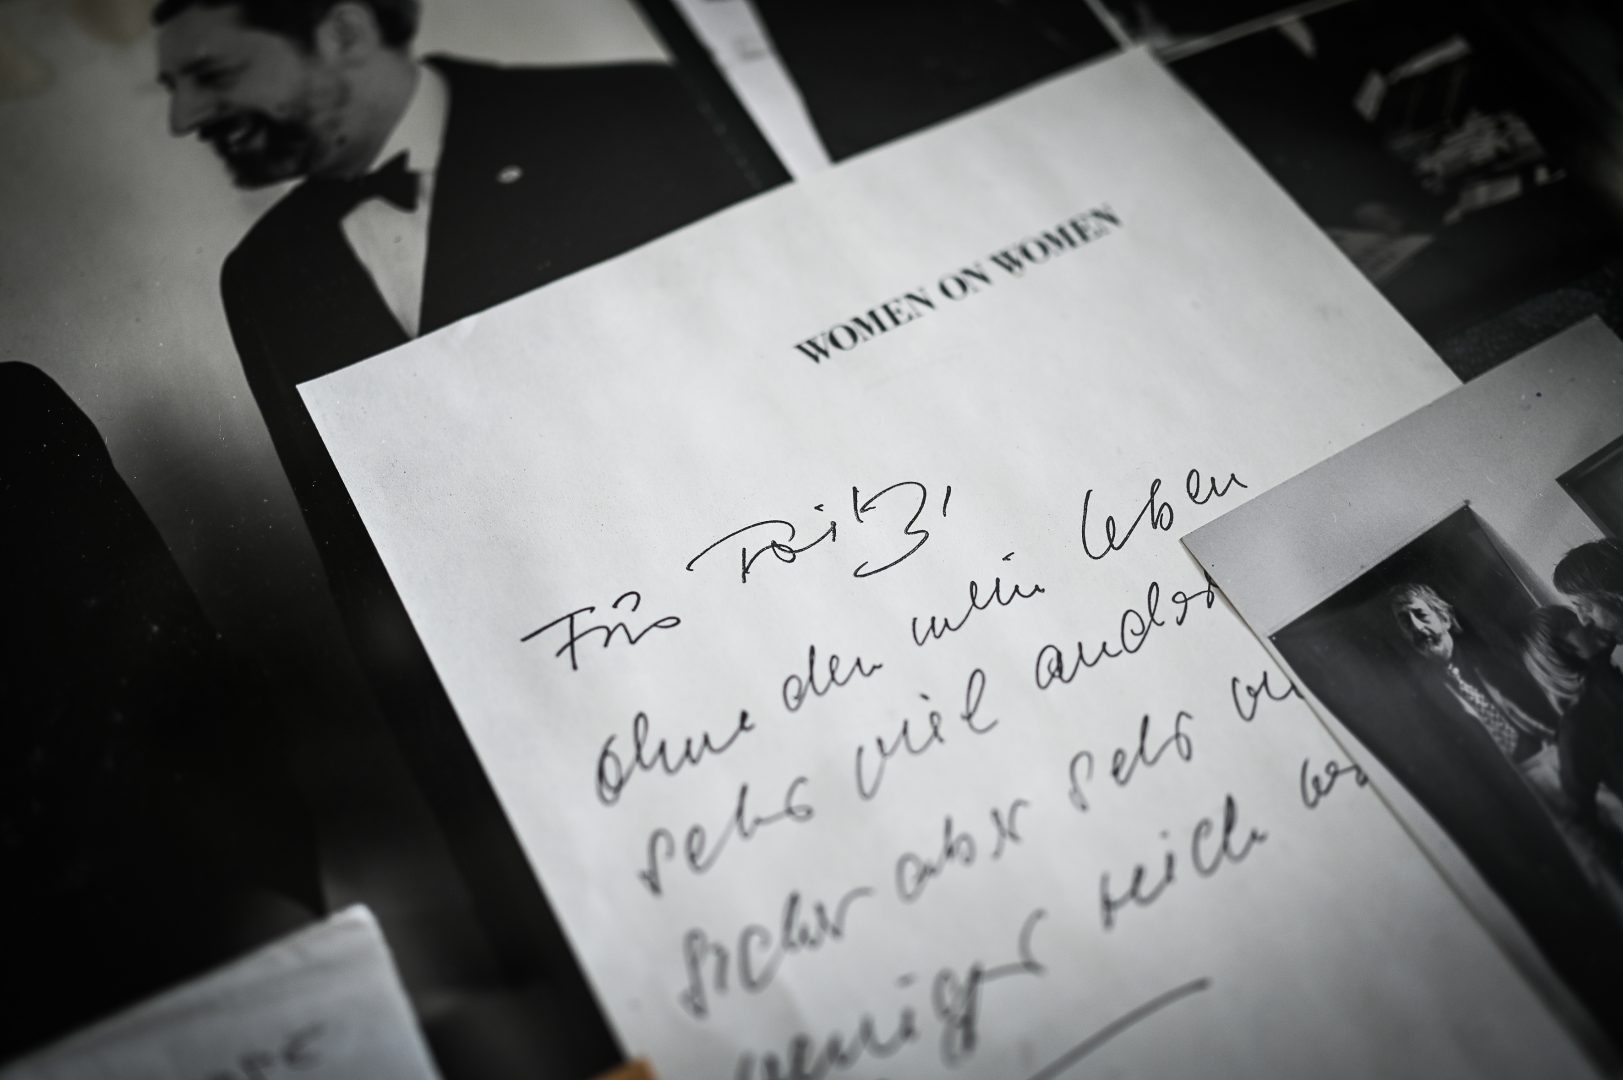 WOMEN ON WOMEN
Für Fritz,
ohne den mein leben
sehr viel
sicher aber sehr
weniger reich